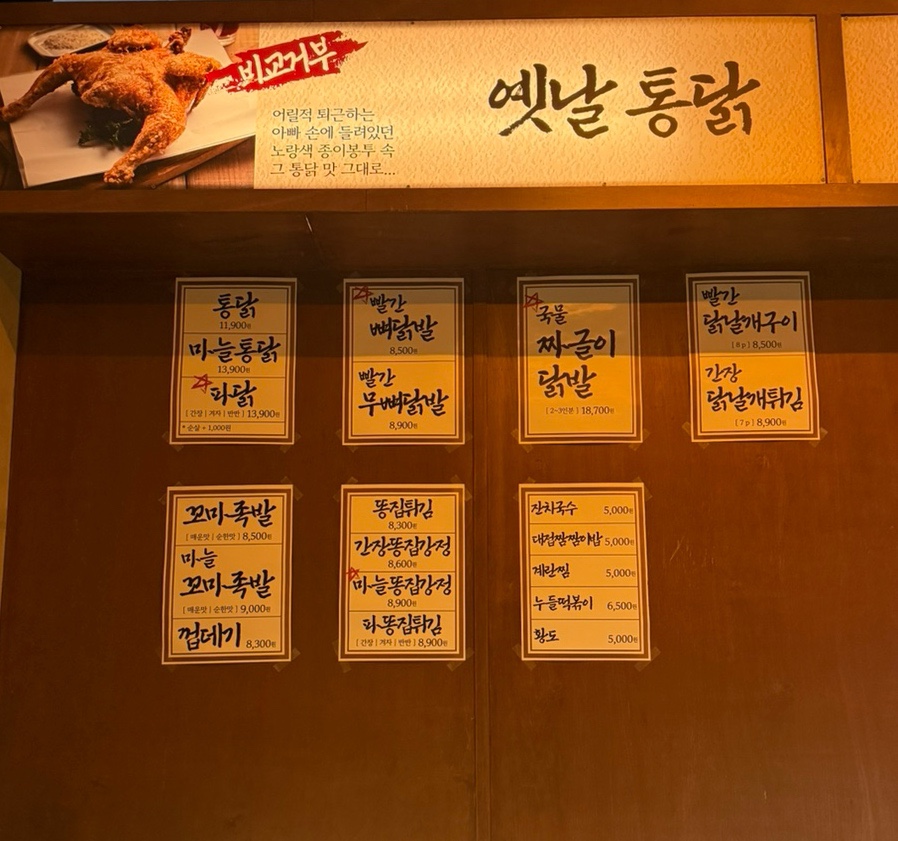 비교거부
옛날 통닭
어릴적 퇴근하는
아빠 손에 들려있던
노랑색 종이봉투 속
그 통닭 맛 그대로...
통닭
11,900원
마늘통닭
13,900원
파닭
[ 간장 | 겨자 | 반반 ] 13,900원
* 순살 + 1,000원
빨간
뼈닭발
8,500원
빨간
무뼈닭발
8,900원
국물
짜글이
닭발
[ 2~3인분 ] 18,700원
빨간
닭날개구이
[ 8p ] 8,500원
간장
닭날개튀김
[ 7p ] 8,900원
꼬마족발
[ 매운맛 | 순한맛 ] 8,500원
마늘
꼬마족발
[ 매운맛 | 순한맛 ] 9,000원
껍데기 8,300원
똥집튀김
8,300원
간장똥집강정
8,600원
마늘똥집강정
8,900원
파똥집튀김
[ 간장 | 겨자 | 반반 ] 8,900원
잔치국수 5,000원
대접짬짜미밥 5,000원
계란찜 5,000원
누들떡볶이 6,500원
황도 5,000원